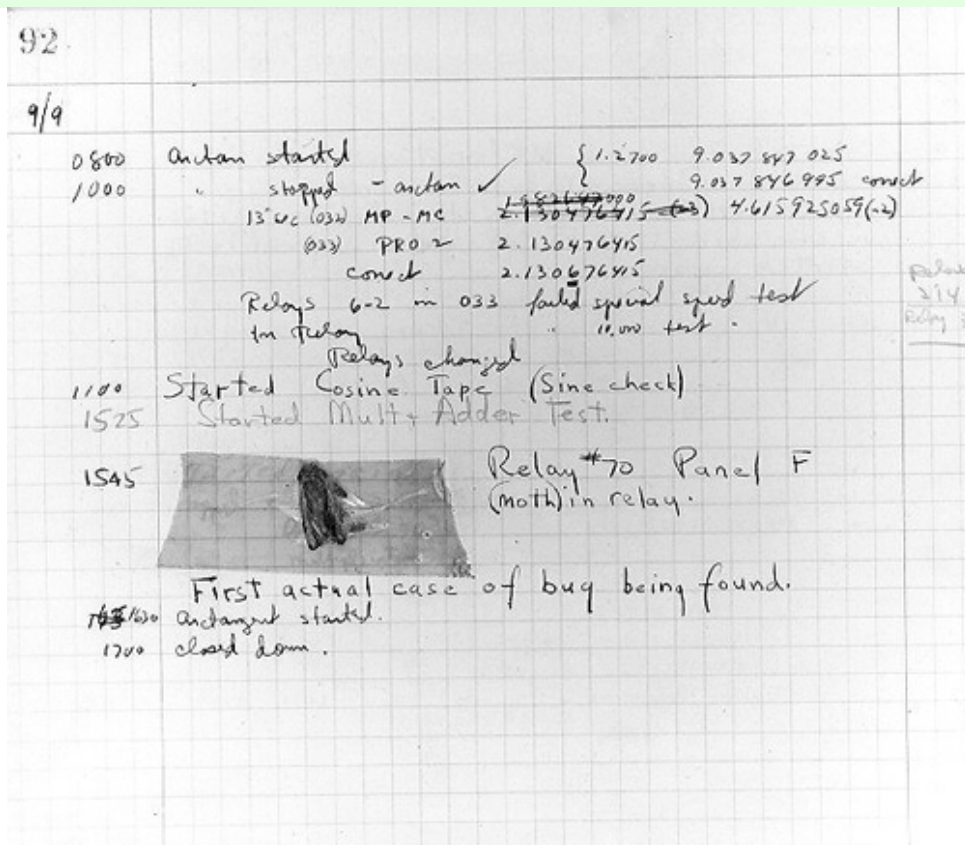 92
9/9
0800 Antan started { 1.2700 9.037 847 025
1000 " stopped - antan ✓ 9.037 846 995 conect
13"uc (032) MP - MC 2.130476415 (-3) 4.615925059(-2)
(033) PRO 2 2.130476415
conect 2.130676415
Relays 6-2 in 033 failed special speed test
in Relay " 10.000 test .
Relays changed
1100 Started Cosine Tape (Sine check)
1525 Started Mult + Adder Test.
1545 Relay #70 Panel F
(moth) in relay.
First actual case of bug being found.
1630 Antangent started.
1700 closed down .
Relay
Relay